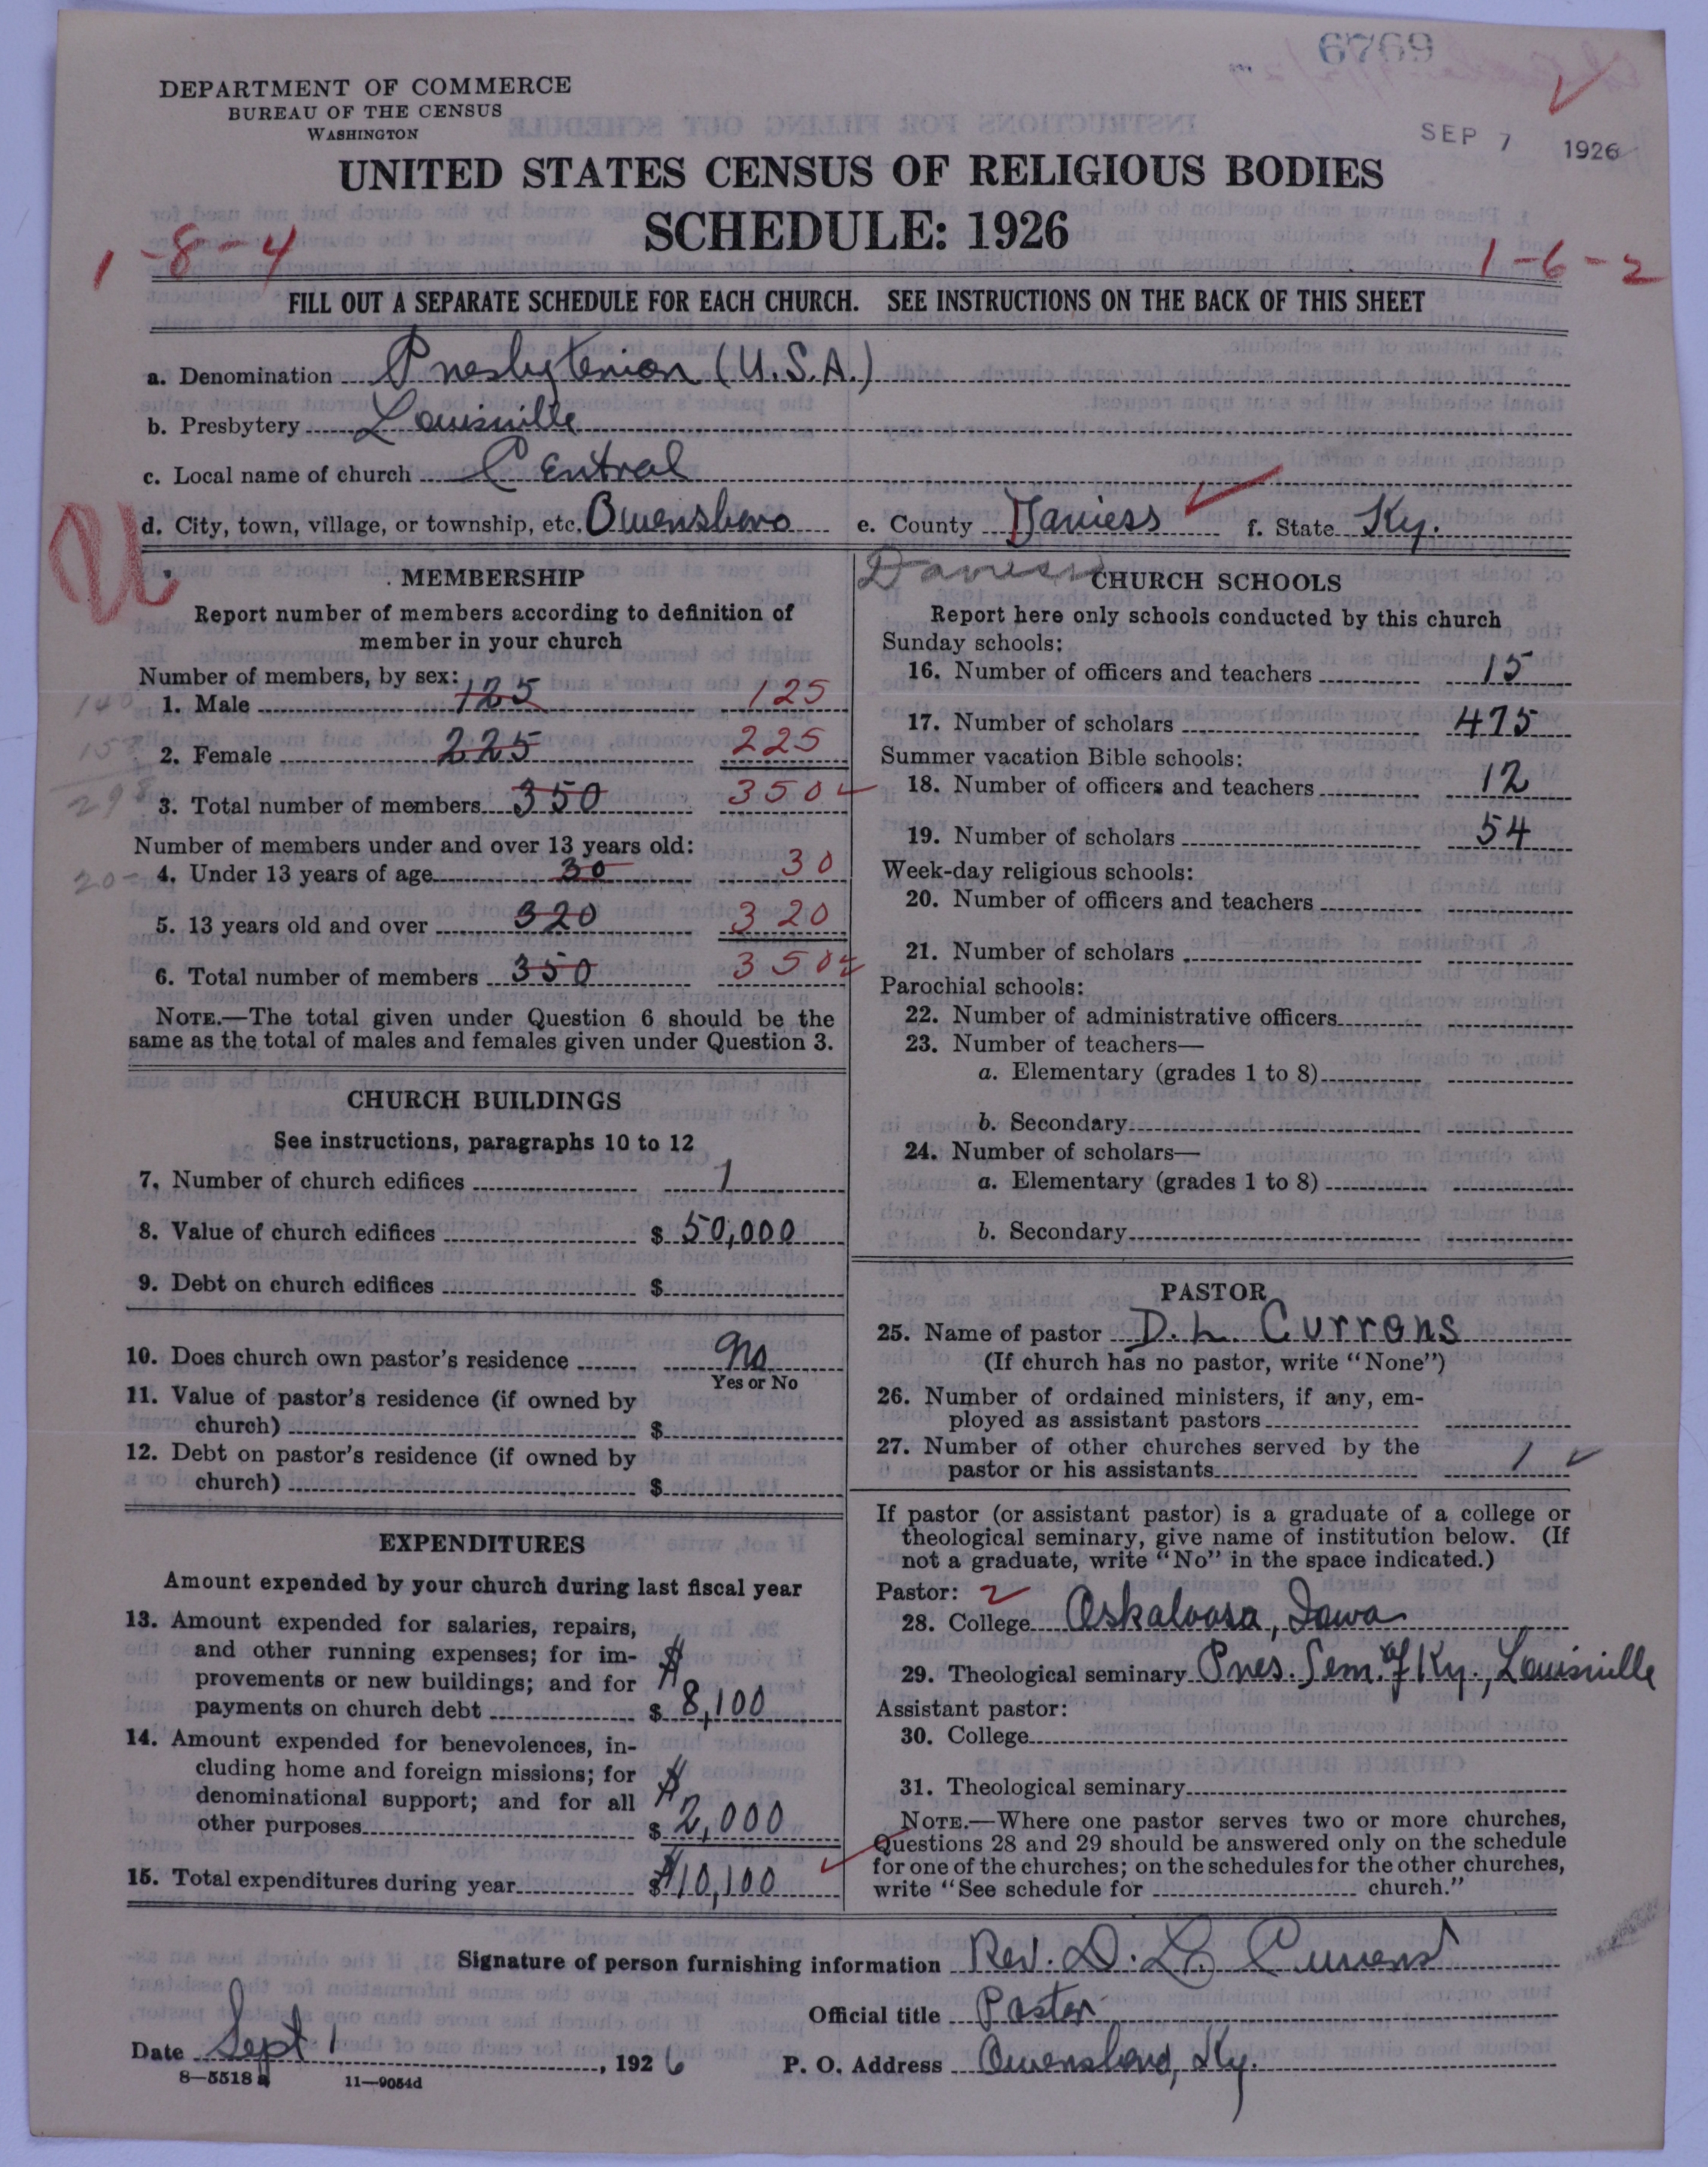 6769
DEPARTMENT OF COMMERCE
BUREAU OF THE CENSUS
WASHINGTON
SEP 7 1926
UNITED STATES CENSUS OF RELIGIOUS BODIES
SCHEDULE: 1926
1-8-4
1-6-2
FILL OUT A SEPARATE SCHEDULE FOR EACH CHURCH. SEE INSTRUCTIONS ON THE BACK OF THIS SHEET
a. Denomination Presbyterian (U.S.A.)
b. Presbytery Louisville
c. Local name of church Central
d. City, town, village, or township, etc. Owensboro e. County Daviess f. State Ky.
MEMBERSHIP
Report number of members according to definition of
member in your church
Number of members, by sex:
1. Male 125 125
2. Female 225 225
3. Total number of members 350 350
Number of members under and over 13 years old:
4. Under 13 years of age 30 30
5. 13 years old and over 320 320
6. Total number of members 350 350
NOTE.—The total given under Question 6 should be the
same as the total of males and females given under Question 3.
CHURCH BUILDINGS
See instructions, paragraphs 10 to 12
7. Number of church edifices 1
8. Value of church edifices $ 50,000
9. Debt on church edifices $
10. Does church own pastor's residence No
Yes or No
11. Value of pastor's residence (if owned by
church) $
12. Debt on pastor's residence (if owned by
church) $
EXPENDITURES
Amount expended by your church during last fiscal year
13. Amount expended for salaries, repairs,
and other running expenses; for im-
provements or new buildings; and for $
payments on church debt $ 8,100
14. Amount expended for benevolences, in-
cluding home and foreign missions; for
denominational support; and for all $
other purposes $ 2,000
15. Total expenditures during year $ $10,100
Daviess
CHURCH SCHOOLS
Report here only schools conducted by this church
Sunday schools:
16. Number of officers and teachers 15
17. Number of scholars 475
Summer vacation Bible schools:
18. Number of officers and teachers 12
19. Number of scholars 54
Week-day religious schools:
20. Number of officers and teachers
21. Number of scholars
Parochial schools:
22. Number of administrative officers
23. Number of teachers—
a. Elementary (grades 1 to 8)
b. Secondary
24. Number of scholars—
a. Elementary (grades 1 to 8)
b. Secondary
PASTOR
25. Name of pastor D. L. Currens
(If church has no pastor, write "None")
26. Number of ordained ministers, if any, em-
ployed as assistant pastors
27. Number of other churches served by the
pastor or his assistants 1
If pastor (or assistant pastor) is a graduate of a college or
theological seminary, give name of institution below. (If
not a graduate, write "No" in the space indicated.)
Pastor: 2
28. College Oskaloosa, Iowa
29. Theological seminary Pres. Sem. of Ky., Louisville
Assistant pastor:
30. College
31. Theological seminary
NOTE.—Where one pastor serves two or more churches,
Questions 28 and 29 should be answered only on the schedule
for one of the churches; on the schedules for the other churches,
write "See schedule for church."
Signature of person furnishing information Rev. D. L. Currens
Official title Pastor
Date Sept 1, 1926
P. O. Address Owensboro, Ky.
8—5518 a 11—9054d